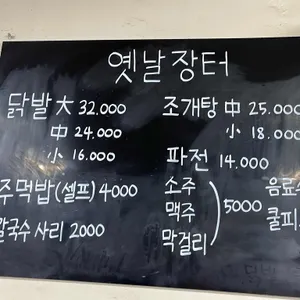 옛날장터
닭발 大 32.000
中 24.000
小 16.000
주먹밥(셀프) 4000
칼국수 사리 2000
조개탕 中 25.000
小 18.000
파전 14.000
소주
맥주
막걸리
5000